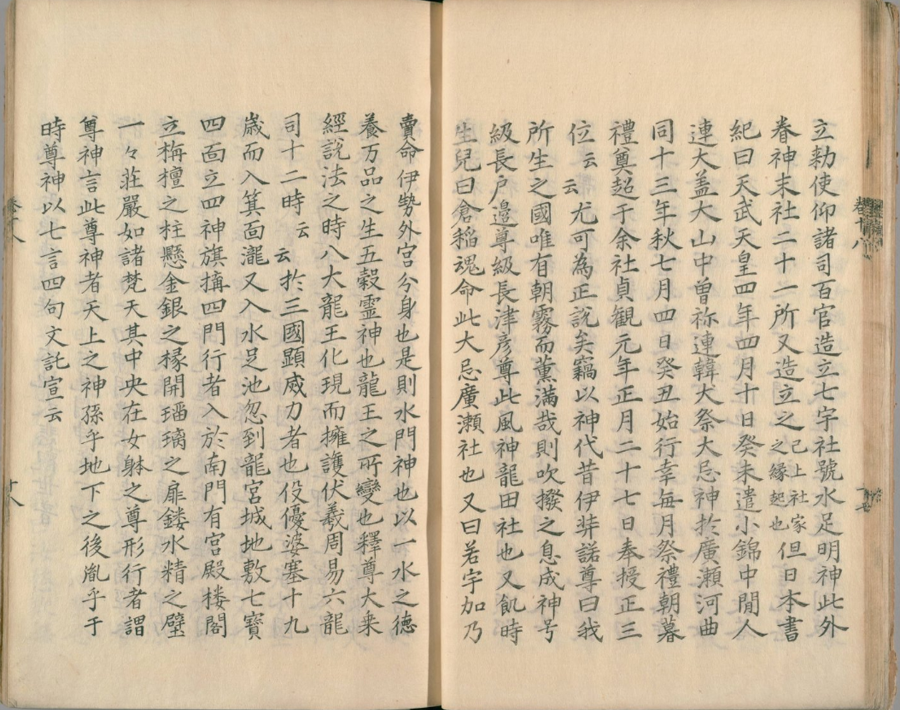 立勅使仰諸司百官造立七字社號水足明神此外
眷神末社二十一所又造立之已上社家之縁起也但日本書
紀曰天武天皇四年四月十日癸未遣小錦中間人
連大盖大山中曽祢連韓犬祭大忌神於廣瀬河曲
同十三年秋七月四日癸丑始行幸毎月祭禮朝暮
禮奠超于余社貞観元年正月二十七日奉授正三
位云云尤可為正説矣竊以神代昔伊弉諾尊曰我
所生之國唯有朝霧而薫満哉則吹撥之息成神号
級長戸邊尊級長津彦尊此風神龍田社也又飢時
生兒曰倉稲魂命此大忌廣瀬社也又曰若宇加乃
賣命伊勢外宮分身也是則水門神也以一水之德
養万品之生五穀霊神也龍王之所變也釋尊大乗
經説法之時八大龍王化現而擁護伏羲周易六龍
司十二時云云於三國顕威力者也役優婆塞十九
歳而入箕面瀧又入水足池忽到龍宮城地敷七寶
四面立四神旗搆四門行者入於南門有宮殿楼閣
立栴檀之柱懸金銀之椽開瑠璃之扉鏤水精之壁
一々荘嚴如諸梵天其中央在女躰之尊形行者謂
尊神言此尊神者天上之神孫乎地下之後胤乎于
時尊神以七言四句文託宣云
巻十八
十八